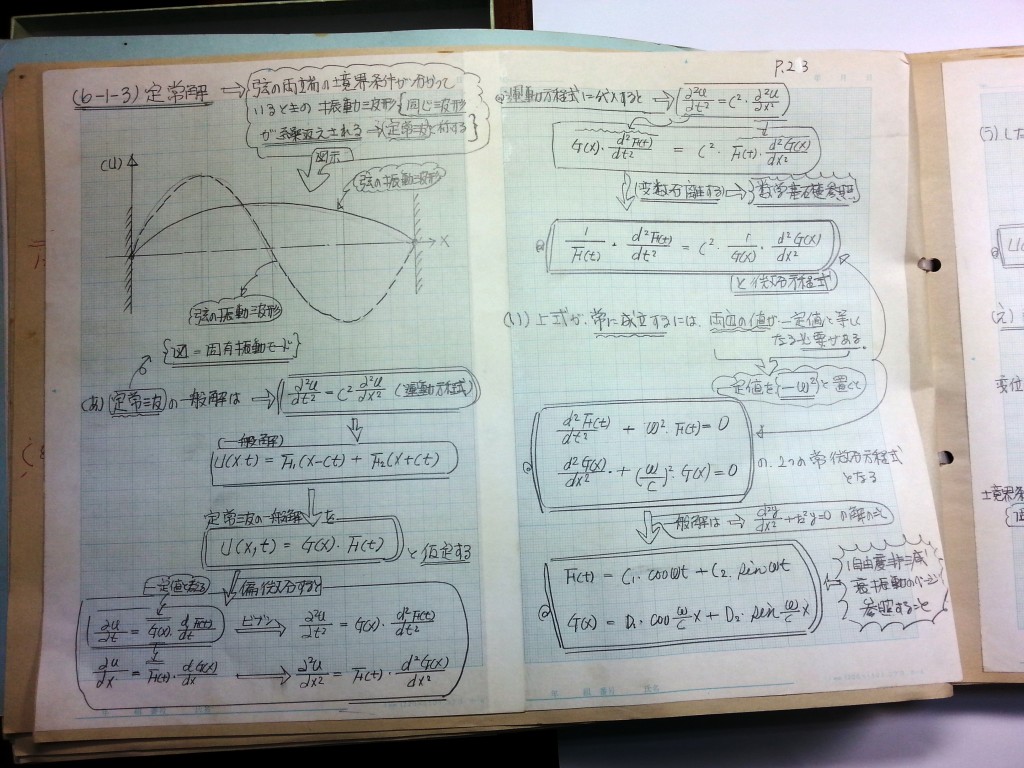 (6-1-3) 定常解 → 弦の両端の境界条件が分かって
いるときの振動波形{同じ波形
が繰返えされる→定常波と称する}
図示
(U)
弦の振動波形
X
弦の振動波形
{図=固有振動モード}
(あ) 定常波の一般解は ← ∂²u/∂t² = C² ∂²u/∂x² (運動方程式)
(一般解)
U(x t) = F₁(x-ct) + F₂(x+ct)
定常波の一般解を
U(x,t) = G(x)・F(t) と仮定する
偏微分すると
∂u/∂t = G(x)・dF(t)/dt → ∂²u/∂t² = G(x)・d²F(t)/dt²
∂u/∂x = F(t)・dG(x)/dx → ∂²u/∂x² = F(t)・d²G(x)/dx²
年 組 番号 氏名
P.23
運動方程式に代入すると → (∂²u/∂t² = C²・∂²u/∂x²)
G(x)・d²F(t)/dt² = C²・F(t)・d²G(x)/dx²
変数分離する → {数学基礎参照}
@ 1/F(t)・d²F(t)/dt² = C²・1/G(x)・d²G(x)/dx²
(と微分方程式)
(い) 上式が、常に成立するには、両辺の値が一定値と等しく
なる必要がある。
一定値を{-ω²}と置くと
d²F(t)/dt² + ω²・F(t) = 0
d²G(x)/dx² + (ω/C)²・G(x) = 0
の、2つの常微分方程式
となる
一般解は → d²y/dx² + k²y = 0 の解
F(t) = C₁・cosωt + C₂・sinωt
G(x) = D₁・cos ω/C x + D₂・sin ω/C x
1自由度非減
衰振動のページ
参照すること
年 組 番号 氏名